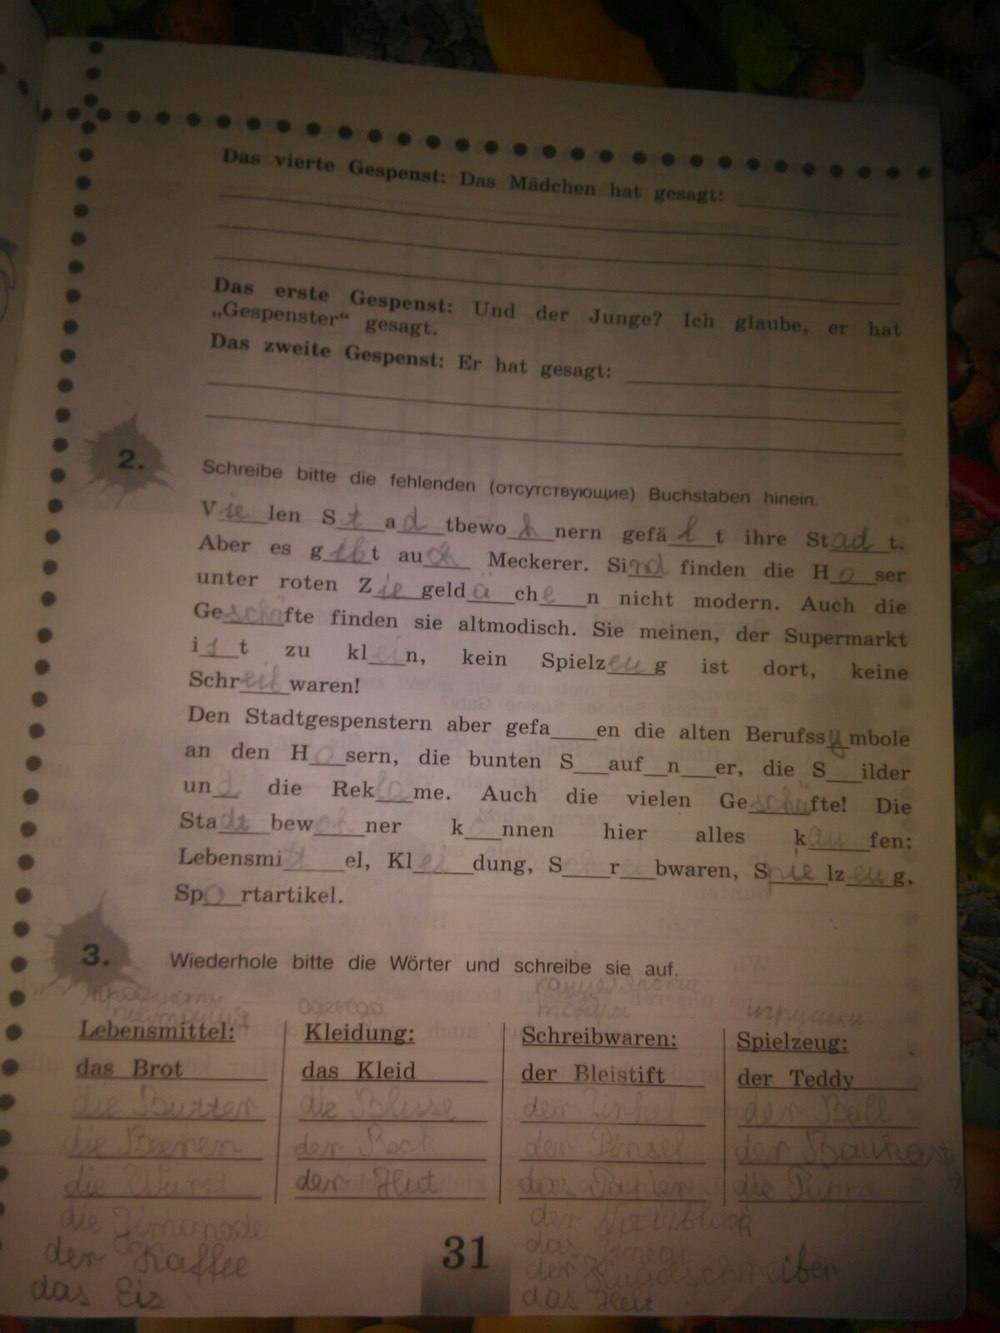 Das vierte Gespenst: Das Mädchen hat gesagt: ____
Das erste Gespenst: Und der Junge? Ich glaube, er hat
„Gespenster“ gesagt.
Das zweite Gespenst: Er hat gesagt: ____
2.
Schreibe bitte die fehlenden (отсутствующие) Buchstaben hinein.
Vielen Stadtbewohnern gefällt ihre Stadt.
Aber es gibt auch Meckerer. Sind finden die Hoser
unter roten Ziegeldächen nicht modern. Auch die
Geschäfte finden sie altmodisch. Sie meinen, der Supermarkt
ist zu klein, kein Spielzeug ist dort, keine
Schreibwaren!
Den Stadtgespenstern aber gefa___en die alten Berufssymbole
an den Hosern, die bunten S___auf__n___er, die S___ilder
und die Reklame. Auch die vielen Geschäfte! Die
Stadtbewohner k__nnen hier alles kaufen:
Lebensmittel, Kleidung, S___r___bwaren, Spielzeug,
Sportartikel.
3.
Wiederhole bitte die Wörter und schreibe sie auf.
одежда
игрушки
Lebensmittel: Kleidung: Schreibwaren: Spielzeug:
das Brot das Kleid der Bleistift der Teddy
die Butter die Bluse der Zirkel der Ball
die der Rock der Pinsel der
die Wurst der Hut die
die
der Kaffee
das Eis
31
das Heft